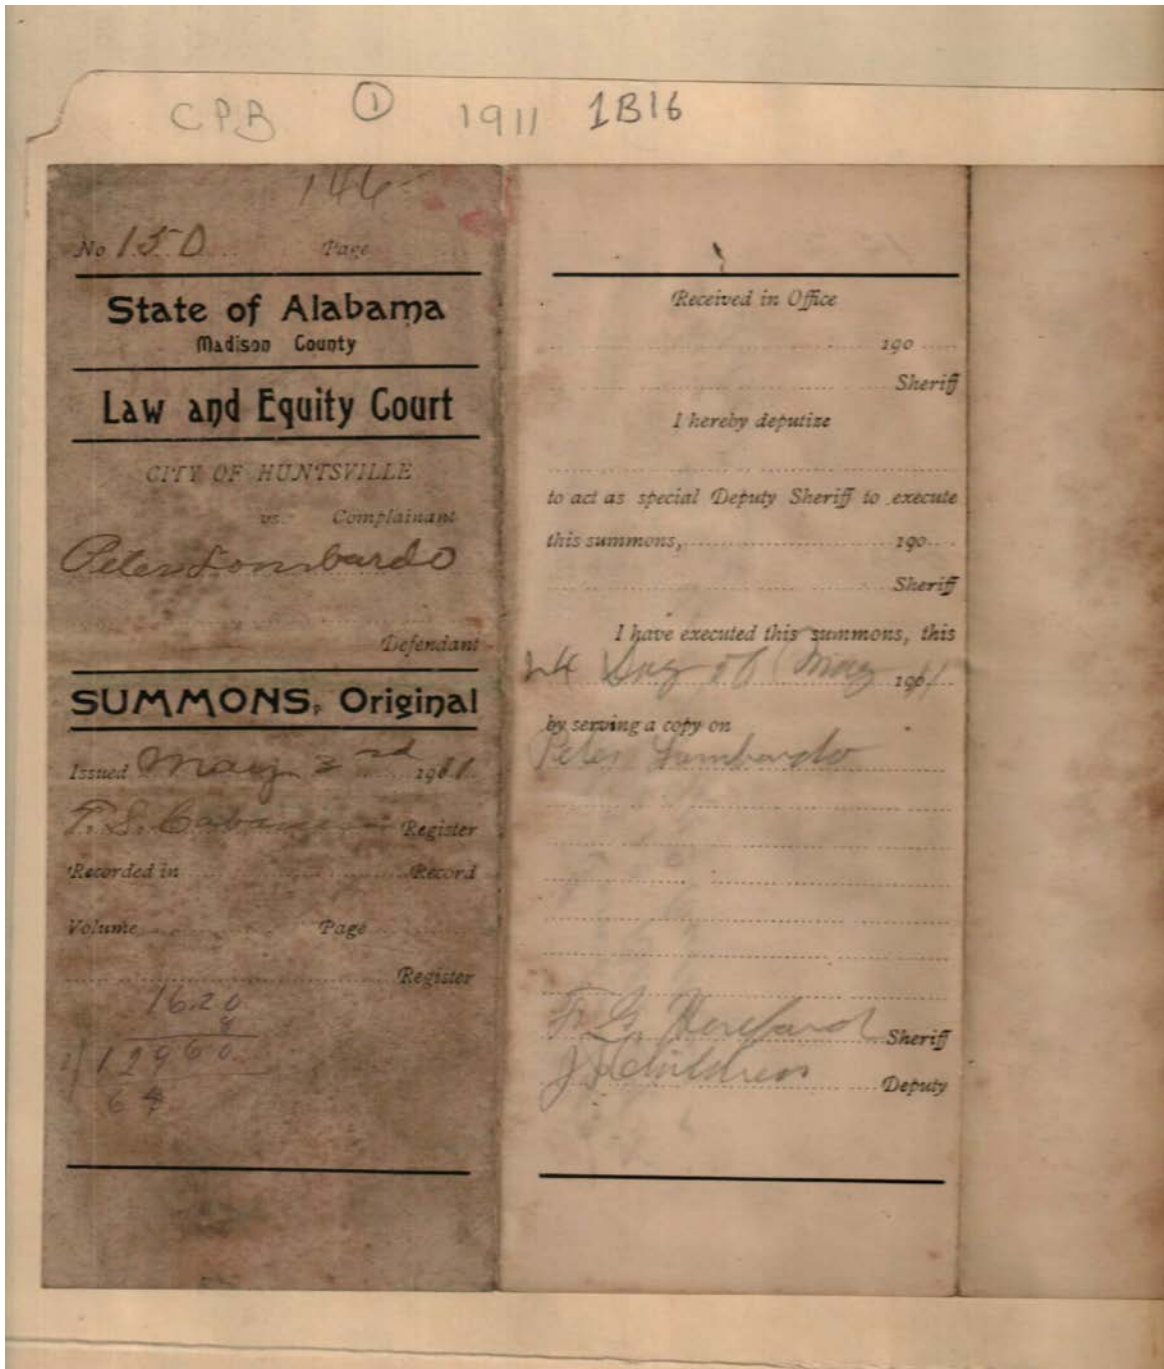 CPB ① 1911 1B16
146
No 150 Page
State of Alabama
Madison County
Law and Equity Court
CITY OF HUNTSVILLE
vs. Complainant
Peter Lombardo
Defendant
SUMMONS, Original
Issued May 2nd 1911
T. S. Register
Recorded in Record
Volume Page
Register
1620
8
12960
64
Received in Office
190
Sheriff
I hereby deputize
to act as special Deputy Sheriff to execute
this summons, 190
Sheriff
I have executed this summons, this
24 Day of May 1911
by serving a copy on
Peter Lumbardo
Sheriff
J Childress Deputy